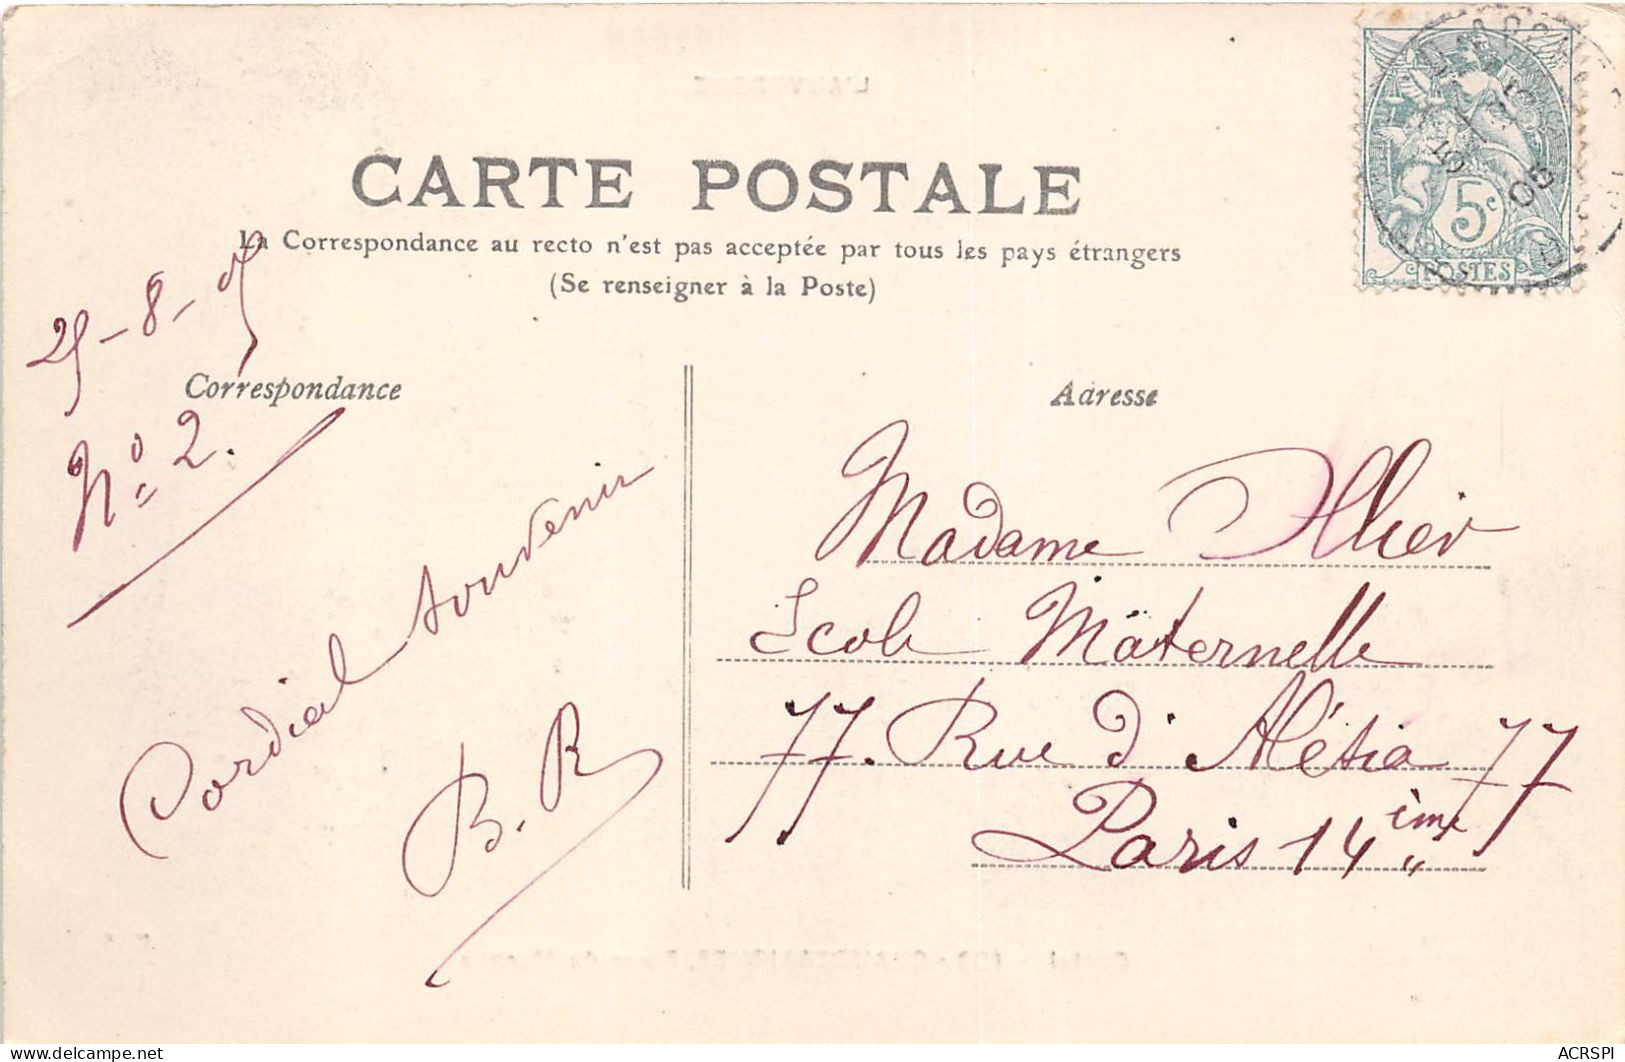 CARTE POSTALE
La Correspondance au recto n'est pas acceptée par tous les pays étrangers
(Se renseigner à la Poste)
5c
POSTES
05
25-8-05
Correspondance
No 2.
Cordial souvenir
B. R
Adresse
Madame Allier
Ecole Maternelle
77. Rue d'Alésia 77
Paris 14ème
ACRSPI